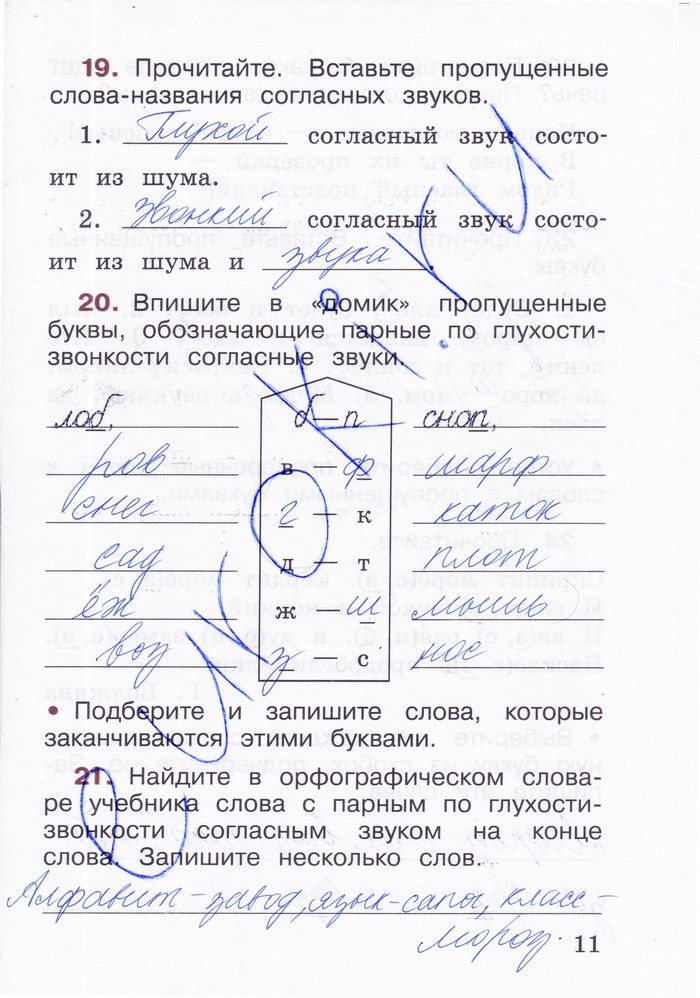 19. Прочитайте. Вставьте пропущенные
слова-названия согласных звуков.
1. Глухой согласный звук состо-
ит из шума.
2. звонкий согласный звук состо-
ит из шума и звука.
20. Впишите в «домик» пропущенные
буквы, обозначающие парные по глухости-
звонкости согласные звуки.
лоб, б — п сноп,
ров в ф шарф
снег г — к каток
сад д — т плот
ёж ж ш мышь
воз з — с нос
• Подберите и запишите слова, которые
заканчиваются этими буквами.
21. Найдите в орфографическом слова-
ре учебника слова с парным по глухости-
звонкости согласным звуком на конце
слова. Запишите несколько слов.
Алфавит - завод, язык - сапог, класс -
мороз.
11